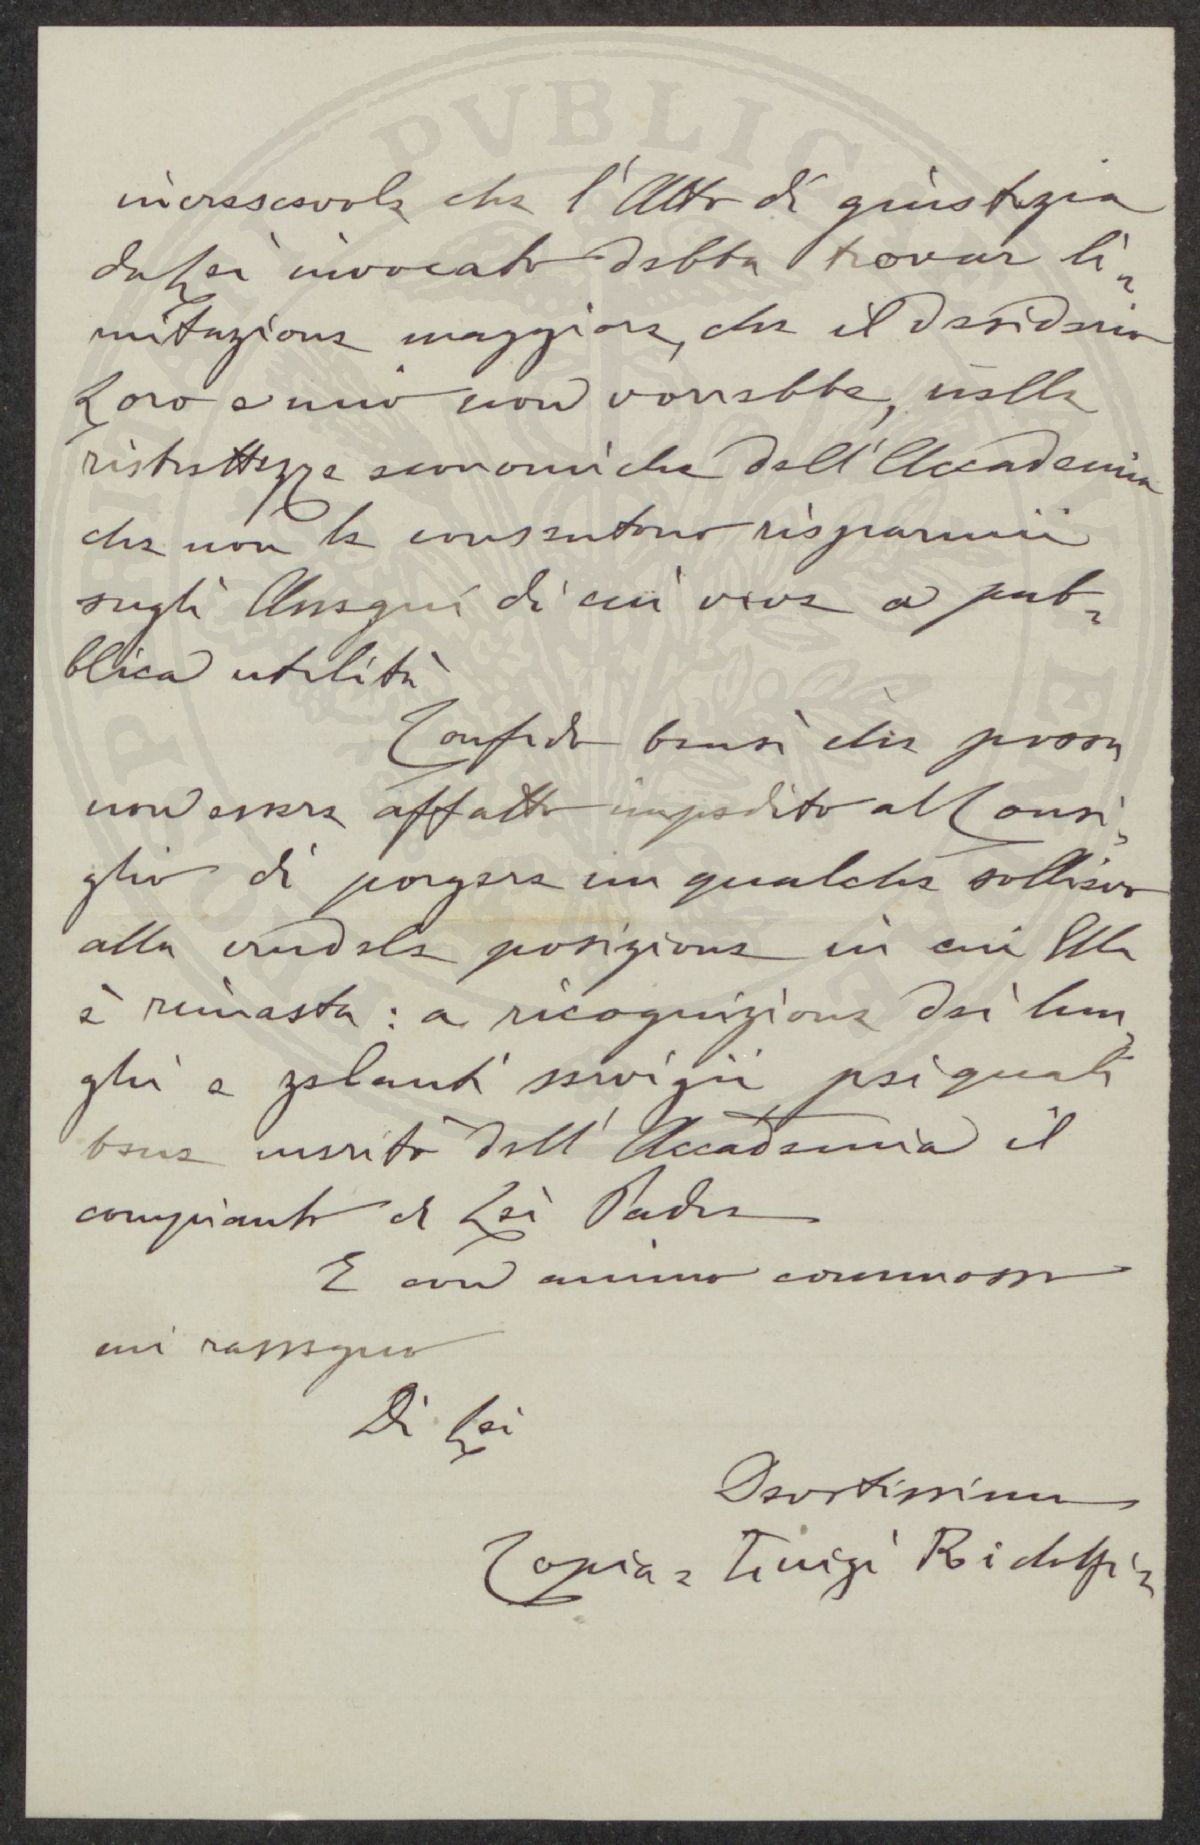 increscevole che l'Atto di giustizia
da Lei invocato debba trovar li-
mitazione maggiore, che il desiderio
Loro e mio non vorrebbe, nelle
ristrettezze economiche dell'Accademia
che non le consentono risparmii
sugli Assegni di cui vive a pub-
blica utilità
Confido bensì che possa
non essere affatto impedito al Consi-
glio di porgere un qualche sollievo
alla crudele posizione in cui Ella
è rimasta: a ricognizione dei lun-
ghi e zelanti servigii pei quali
bene meritò dell'Accademia il
compianto di Lei Padre
E con animo commosso
mi rassegno
Di Lei
Devotissimo
Copia = Luigi Ridolfi =